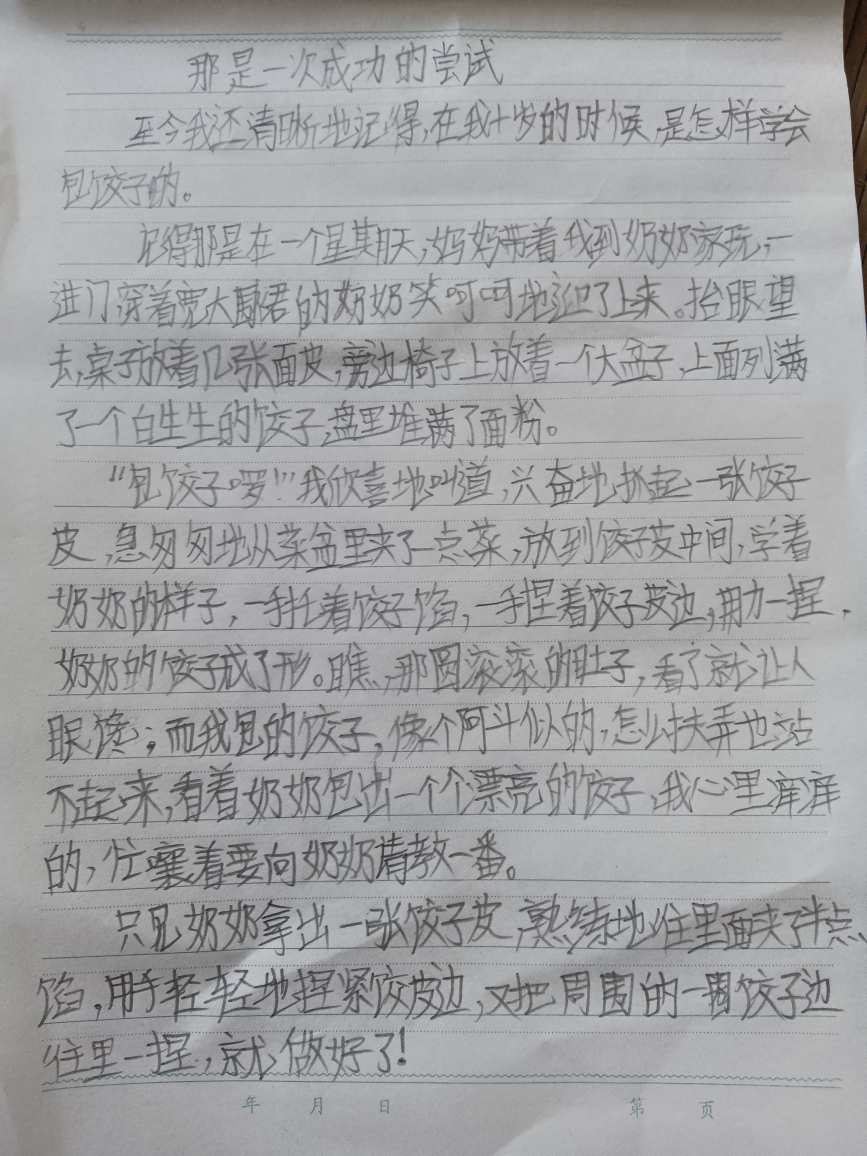 那是一次成功的尝试
至今我还清晰地记得,在我十岁的时候,是怎样学会
包饺子的。
记得那是在一个星期天,妈妈带着我到奶奶家玩,一
进门穿着宽大厨君的奶奶笑呵呵地迎了上来。抬眼望
去,桌子放着几张面皮,旁边椅子上放着一个大盆子,上面列满
了一个白生生的饺子,盘里堆满了面粉。
"包饺子啰!"我欣喜地叫道,兴奋地抓起一张饺子
皮,急匆匆地从菜盆里夹了一点菜,放到饺子皮中间,学着
奶奶的样子,一手托着饺子馅,一手捏着饺子皮边,用力一捏,
奶奶的饺子成了形。瞧,那圆滚滚的肚子,看了就让人
眼馋;而我包的饺子,像个阿斗似的,怎么扶弄也站
不起来,看着奶奶包出一个个漂亮的饺子,我心里痒痒
的,忙嚷着要向奶奶请教一番。
只见奶奶拿出一张饺子皮,熟练地往里面夹了半点
馅,用手轻轻地捏紧饺皮边,又把周围的一圈饺子边
往里一捏,就做好了!
年 月 日 第 页